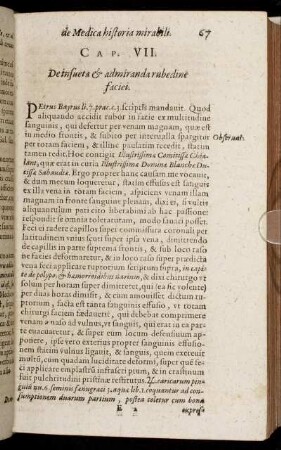 de Medica historia mirabili. 67
CAP. VII.
De insueta & admiranda rubedine
faciei.
PEtrus Bayrus li. 7. prac. c. 3. scriptis mandauit. Quod
aliquando accidit rubor in facie ex multitudine
sanguinis, qui defertur per venam magnam, quæ est
in medio frontis, & subito per interualla spargitur
per totam faciem, & pulillum incutit, paulatim recedit, sed
tamen redit. Hoc contigit Illustrissimæ Comitissæ
quæ erat in curia Illustrissimæ Dominæ Blanche Du-
cissæ Sabaudiæ. Ergo propter hanc causam me vocauit,
& dum mecum loqueretur, statim effusus est sanguis
ex illa vena in totam faciem, aspiciens venam illam
magnam in fronte sanguine plenam, dixi ei, si vultis
aliquantulum pati cito liberabimini ab hac passione:
respondit se omnia toleraturam, modo sanari posset.
Feci ergo radere capillos super commissura coronali per
latitudinem vnius vncis feci super ipsa vena, dimittendo
de capillis in parte suprema frontis, & sub loco raso
ne faciem deformaret, & in loco raso super vena ipsa
feci applicare ruptorium scriptum supra, in capite
de polypo, & hæmorrhoidibus narium, & dixi chirurgo vt
solum per horam super dimitteret, qui (ea hc volente)
per duas horas dimisit, & cum amouisset dictum ru-
ptorium, facta est tanta sanguinis effusio, vt totam
chirurgi faciem fœdauerit, & quia erat in capite de-
merso ad vulnus, vt sanguis, qui erat in ea parte
euacuaretur, & super eum locum defensiuum appo-
neret, ipso vero expertus sanguinis effusio-
nem statim vulnus ligauit, &
cum quadam luciditate deformi, super quæ fe-
ci applicari emplastrum isti simile, & in crastinum
fuit pulchritudini pristinæ restitutus. ♃. caricarum pin-
guiũ nu. 8. seminis fænugræci 3. aquæ lib. 1. coquantur ad con-
sumptionem duarum partium, postea coletur cum bona
E 2 expres-
Obseruat.